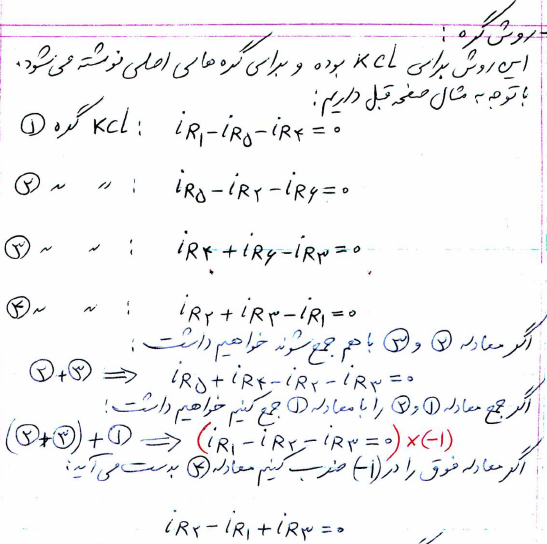 روش گره :
این روش براساس KCL بوده و برای گره های اصلی نوشته می‌شود.
با توجه به مثال صفحه قبل داریم :
KCL گره ① : iR۱ - iR۵ - iR۴ = ۰
〃 〃 ② : iR۵ - iR۲ - iR۶ = ۰
〃 〃 ③ : iR۴ + iR۶ - iR۳ = ۰
〃 〃 ④ : iR۲ + iR۳ - iR۱ = ۰
اگر معادله ② و ③ با هم جمع شوند خواهیم داشت :
②+③ ⟹ iR۵ + iR۴ - iR۲ - iR۳ = ۰
اگر جمع معادله ① و ② را با معادله ① جمع کنیم خواهیم داشت :
(②+③)+① ⟹ (iR۱ - iR۲ - iR۳ = ۰) × (-۱)
اگر معادله فوق را در (-۱) ضرب کنیم معادله ④ بدست می آید :
iR۲ - iR۱ + iR۳ = ۰